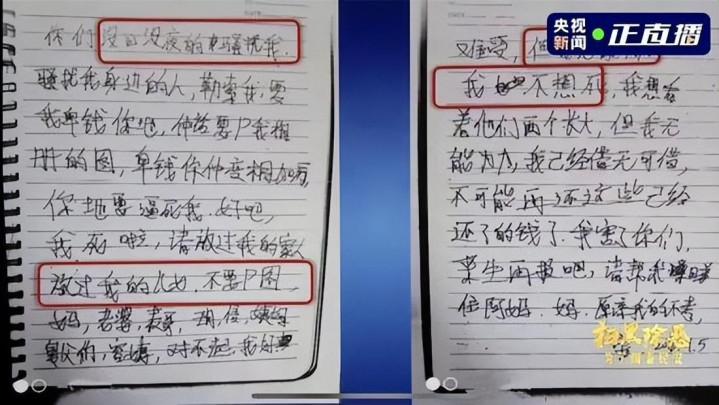 央视
新闻
正直播
你们没日没夜的骚扰我.
骚扰我身边的人,勒索我,要
我卑钱你吔,仲 要P我相
册的图,卑钱你仲变相加
你地要逼死我.好吧,
我死啦,请放过我的家人
放过我的儿女,不要P图,
妈,老婆,表哥,
们, 对不起,我
难受,但
我 不想死,我想看
着他们两个长大,但我无
能为力,我已经借无可借,
不可能再还这些已经
还了的钱了.我害了你们,
来生再报吧,请帮我
住阿妈.妈.原谅我的不孝,
扫黑除恶
为了国泰民安